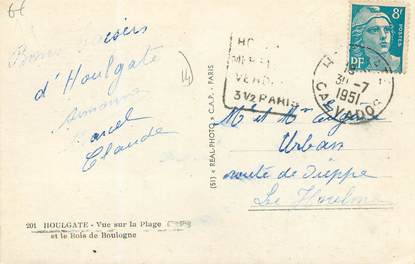 6f
Bons baisers
d'Houlgate
Simonne
Marcel
Claude
14
HO
MER
VEND
3 H½ PARIS
8F
POSTES
RF
30-7
1951
CALVADOS
(51) « REAL-PHOTO » C.A.P. - PARIS
Mr et Mme
Urban
route de Dieppe
Le Houlme
201 HOULGATE - Vue sur la Plage
et le Bois de Boulogne